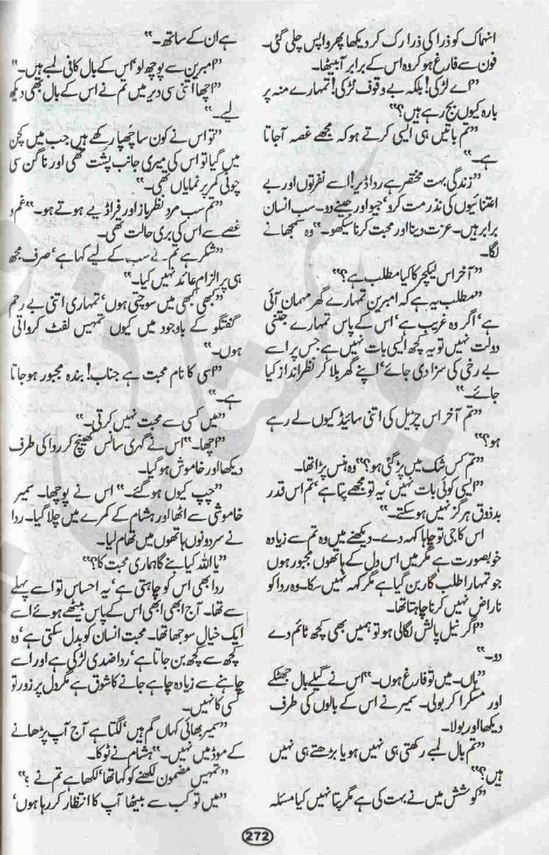 انہماک کو ذرا کی ذرا رک کر دیکھا پھر واپس چلی گئی۔
فون سے فارغ ہو کر وہ اس کے برابر آ بیٹھا۔
”اے لڑکی! بلکہ بے وقوف لڑکی! تمہارے منہ پر
بارہ کیوں بج رہے ہیں؟“
”تم باتیں ہی ایسی کرتے ہو کہ مجھے غصہ آ جاتا
ہے۔“
”زندگی بہت مختصر ہے ردا ڈیر! اسے نفرتوں اور بے
اعتنائیوں کی نذر مت کرو‘ جیو اور جینے دو۔ سب انسان
برابر ہیں۔ عزت دینا اور محبت کرنا سیکھو۔“ وہ سمجھانے
لگا۔
”آخر اس لیکچر کا کیا مطلب ہے؟“
”مطلب یہ ہے کہ امبرین تمہارے گھر مہمان آئی
ہے‘ اگر وہ غریب ہے‘ اس کے پاس تمہارے جتنی
دولت نہیں تو یہ کچھ ایسی بات نہیں ہے جس پر اسے
بے رخی کی سزا دی جائے‘ اپنے گھر بلا کر نظر انداز کیا
جائے۔“
”تم آخر اس چڑیل کی اتنی سائیڈ کیوں لے رہے
ہو؟“
”تم کس شک میں پڑ گئی ہو؟“ وہ ہنس پڑا تھا۔
”ایسی کوئی بات نہیں‘ یہ تو مجھے پتا ہے‘ تم اس قدر
بدذوق ہرگز نہیں ہو سکتے۔“
اس کا جی تو چاہا کہہ دے۔ دیکھنے میں وہ تم سے زیادہ
خوبصورت ہے مگر میں اس دل کے ہاتھوں مجبور ہوں
جو تمہارا طلب گار بن گیا ہے مگر کہہ نہیں سکا۔ وہ ردا کو
ناراض نہیں کرنا چاہتا تھا۔
”اگر نیل پالش لگا لی ہو تو ہمیں بھی کچھ ٹائم دے
دو۔“
”ہاں۔ میں تو فارغ ہوں۔“ اس نے گیلے بال جھٹکے
اور مسکرا کر بولی۔ سمیر نے اس کے بالوں کی طرف
دیکھا اور بولا۔
”تم بال لمبے رکھتی ہی نہیں ہو یا بڑھتے ہی نہیں
ہیں؟“
”کوشش میں نے بہت کی ہے مگر پتا نہیں کیا مسئلہ
ہے ان کے ساتھ۔“
”امبرین سے پوچھ لو‘ اس کے بال کافی لمبے ہیں۔“
”اچھا اتنی سی دیر میں تم نے اس کے بال بھی دیکھ
لیے۔“
”تو اس نے کون سا چھپا رکھے ہیں جب میں کچن
میں گیا تو اس کی میری جانب پشت تھی اور ناگن سی
چوٹی کمر پر نمایاں تھی۔“
”تم سب مرد نظر باز اور فراڈیے ہوتے ہو۔“ غم و
غصے سے اس کی بری حالت تھی۔
”شکر ہے تم نے سب کے لیے کہا ہے‘ صرف مجھ
ہی پر الزام عائد نہیں کیا۔“
”کبھی کبھی میں سوچتی ہوں‘ تمہاری اتنی بے رحم
گفتگو کے باوجود میں کیوں تمہیں لفٹ کرواتی
ہوں۔“
”اسی کا نام محبت ہے جناب! بندہ مجبور ہو جاتا
ہے۔“
”میں کسی سے محبت نہیں کرتی۔“
”اچھا۔“ اس نے گہری سانس کھینچ کر ردا کی طرف
دیکھا اور خاموش ہو گیا۔
”چپ کیوں ہو گئے۔“ اس نے پوچھا۔ سمیر
خاموشی سے اٹھا اور ہشام کے کمرے میں چلا گیا۔ ردا
نے سر دونوں ہاتھوں میں تھام لیا۔
”یا اللہ کیا بنے گا ہماری محبت کا؟“
ردا بھی اس کو چاہتی ہے‘ یہ احساس تو اسے پہلے
سے تھا۔ آج ابھی ابھی اس کے پاس بیٹھے ہوئے اسے
ایک خیال سوجھا تھا۔ محبت انسان کو بدل سکتی ہے‘ وہ
کچھ سے کچھ بن جاتا ہے‘ ردا ضدی لڑکی ہے اور اسے
چاہنے سے زیادہ چاہے جانے کا شوق ہے مگر دل پر زور تو
کسی کا نہیں۔
”سمیر بھائی کہاں گم ہیں‘ لگتا ہے آج آپ پڑھانے
کے موڈ میں نہیں۔“ ہشام نے ٹوکا۔
”تمہیں مضمون لکھنے کو کہا تھا‘ لکھا ہے تم نے؟“
”میں تو کب سے بیٹھا آپ کا انتظار کر رہا ہوں‘
272